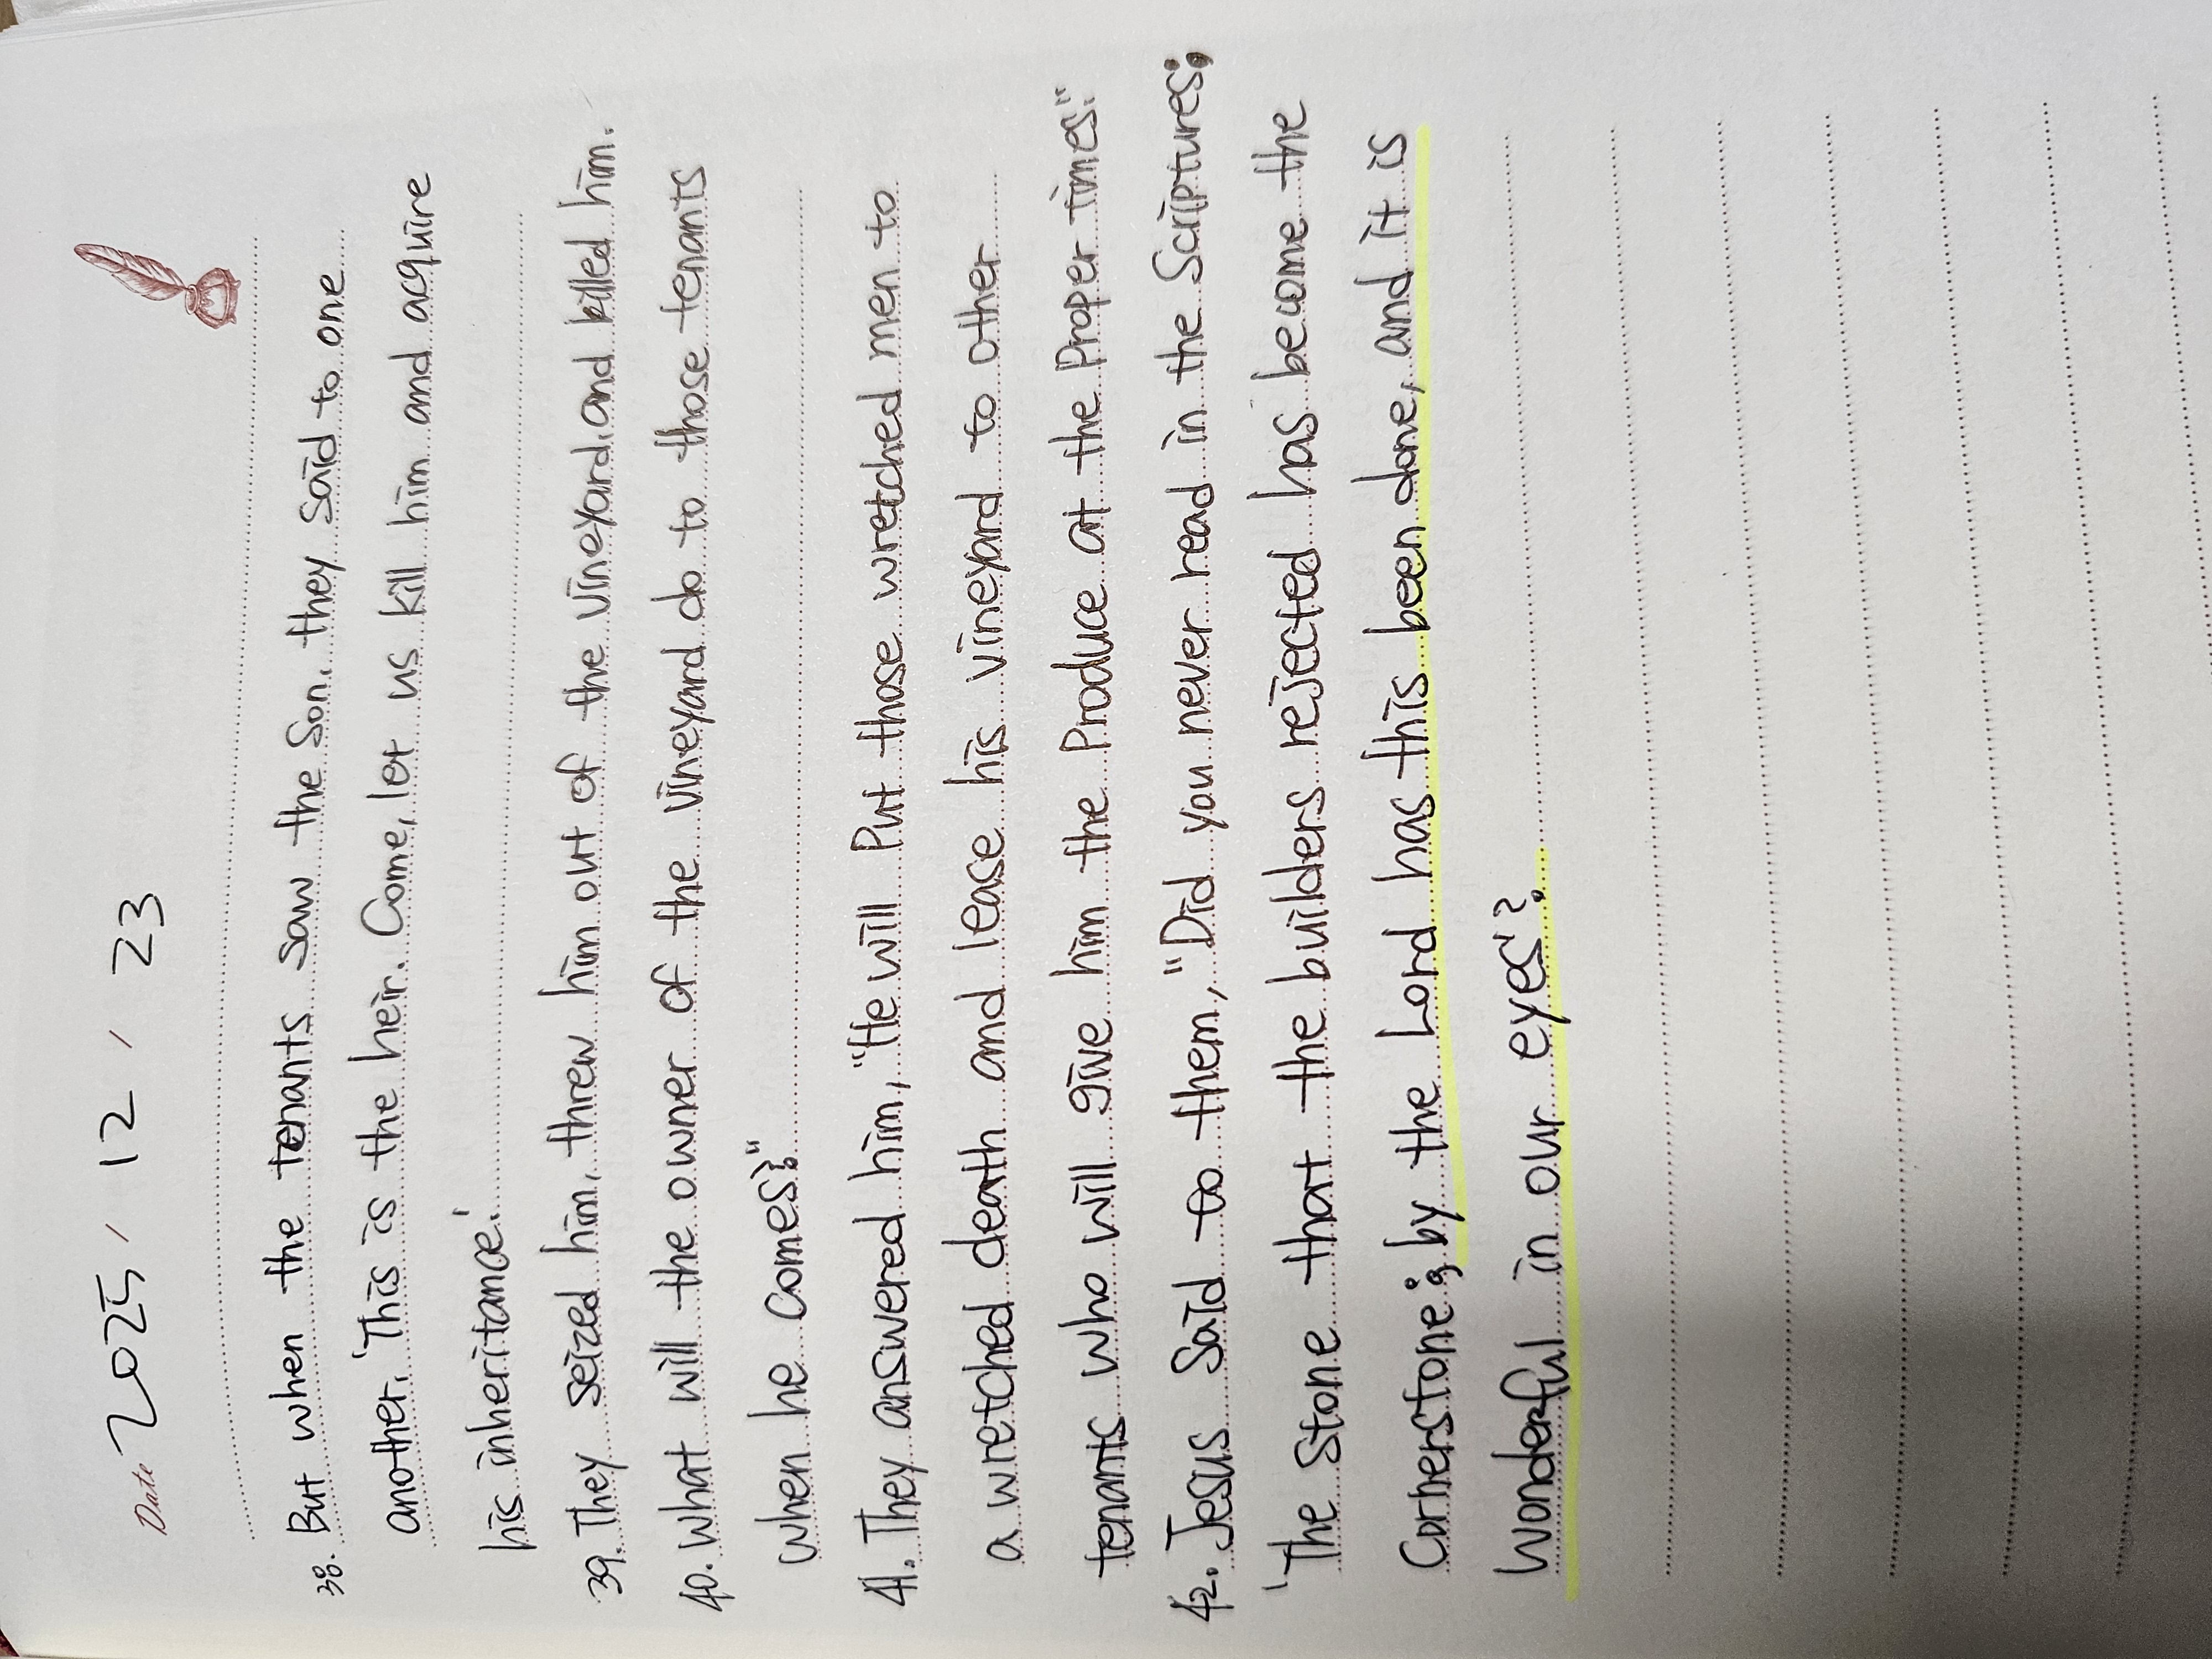 Date 2025 / 12 / 23
38. But when the tenants saw the Son, they said to one
another, 'This is the heir. Come, let us kill him and acquire
his inheritance.'
39. They seized him, threw him out of the vineyard, and killed him.
40. What will the owner of the vineyard do to those tenants
when he comes?"
41. They answered him, "He will Put those wretched men to
a wretched death and lease his vineyard to other
tenants who will give him the Produce at the Proper times."
42. Jesus Said to them, "Did you never read in the Scriptures:
'The Stone that the builders rejected has become the
Cornerstone; by the Lord has this been done, and it is
Wonderful in our eyes'?